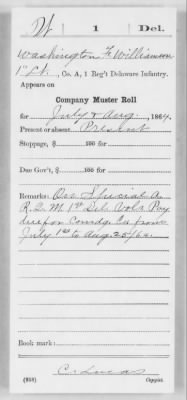 1 Del.
Washington F. Williamson
1" Lt., Co. A, 1 Reg't Delaware Infantry.
Appears on
Company Muster Roll
for July & Aug, 1864.
Present or absent Present
Stoppage, $ 100 for
Due Gov't, $ 100 for
Remarks:
R. Q. M. 1st Del. Vols. Pay
due for Comdg. Co. from
July 1st to Aug 25/64.
Book mark:
(858) C. Lucas
Copyist.